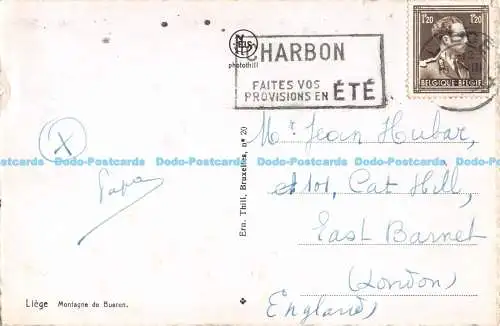 NELS
photothill
CHARBON
FAITES VOS
PROVISIONS EN ÉTÉ
1F20 1F20
BELGIQUE-BELGIE
X
Papa
Mr Jean Hubar,
101, Cat Hill,
East Barnet
(London)
England)
Ern. Thill, Bruxelles, nº 20
Liège Montagne de Bueren.
Dodo-Postcards Dodo-Postcards Dodo-Postcards Dodo-Postcards Dodo-Postcards